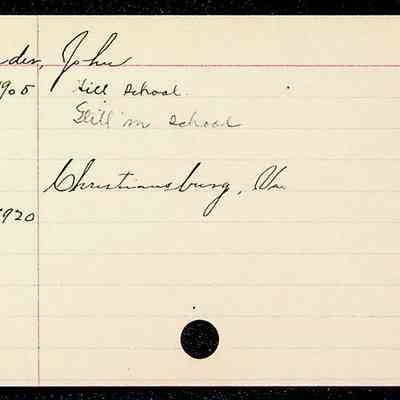 der, John
905 Hill School
Still in School
Christiansburg, Va
1920